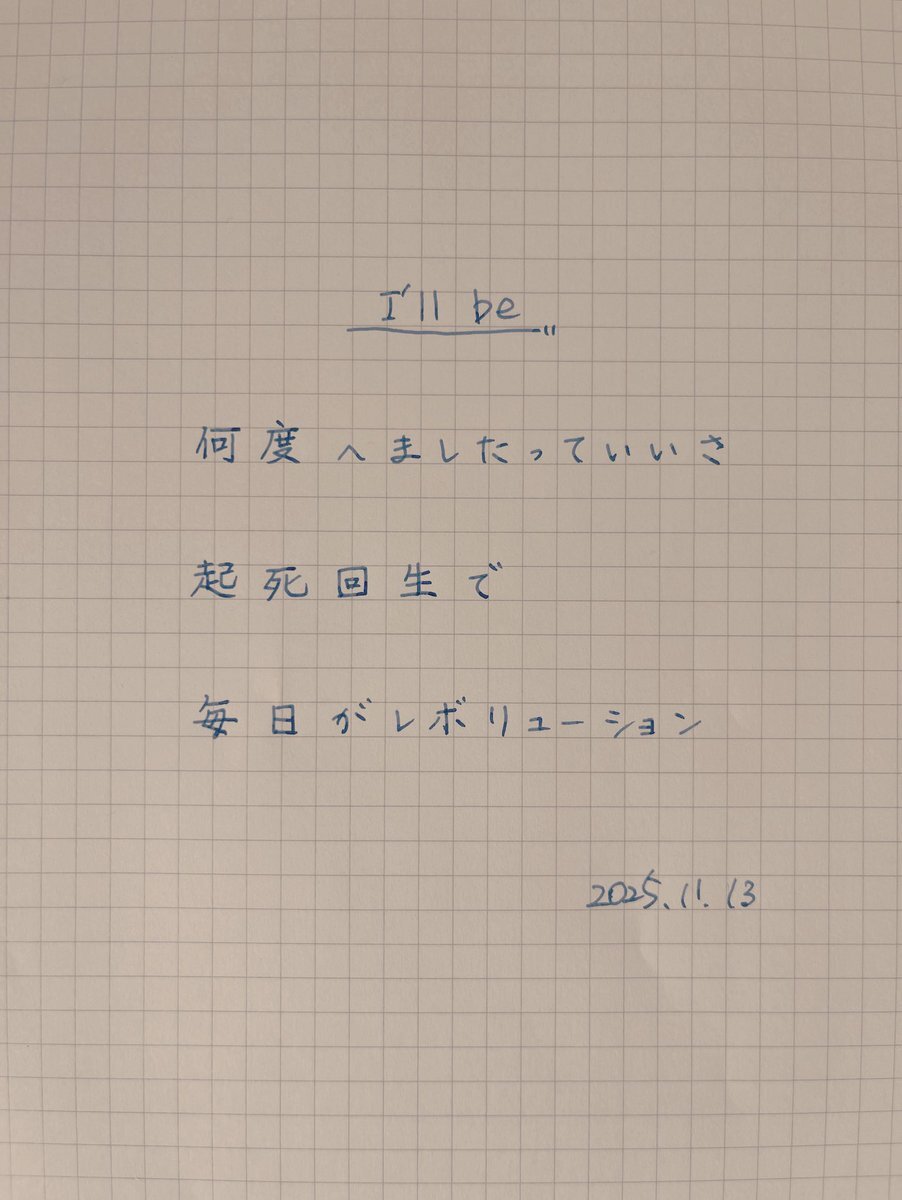 I'll be
何度へましたっていいさ
起死回生で
毎日がレボリューション
2025.11.13